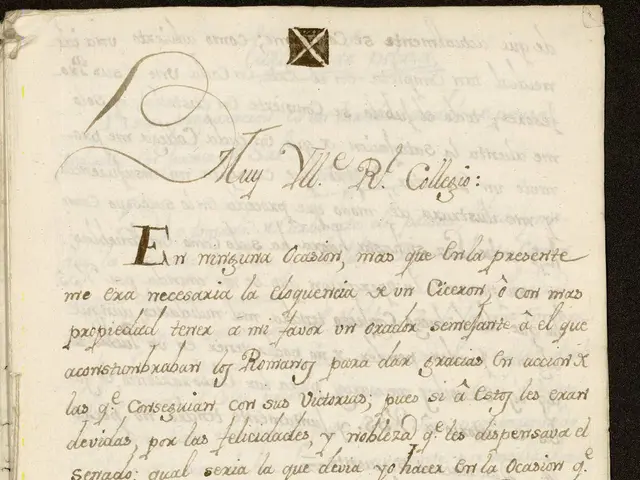 Muy Yll.e R.l Collegio:
En ninguna Ocasion, mas que en la presente
me era necesaria la eloquencia de un Ciceron, ô con mas
propiedad tener a mi favor un orador semejante â el que
aconstumbraban los Romanos para dar gracias en accion de
las q.e Conseguian con sus Victorias; pues si â Estos les eran
devidas, por las felicidades, y nobleza q.e les dispensava el
Senado: qual seria la que devia yo hacer en la Ocasion q.e